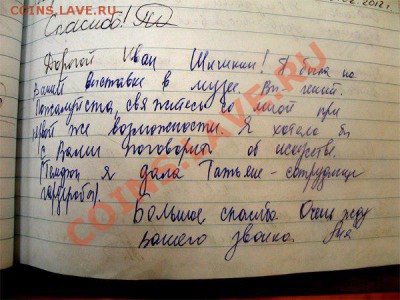 COINS.LAVE.RU
02.2012г.
Спасибо!
Дорогой Иван Шишкин! Я была на
Вашей выставке в музее. Вы - гений.
Пожалуйста, свяжитесь со мной при
первой же возможности. Я хотела бы
с Вами поговорить об искусстве.
Телефон я дала Татьяне - сотруднице
гардероба!
Большое спасибо. Очень жду
вашего звонка.
COINS.LAVE.RU
COINS.LAVE.RU